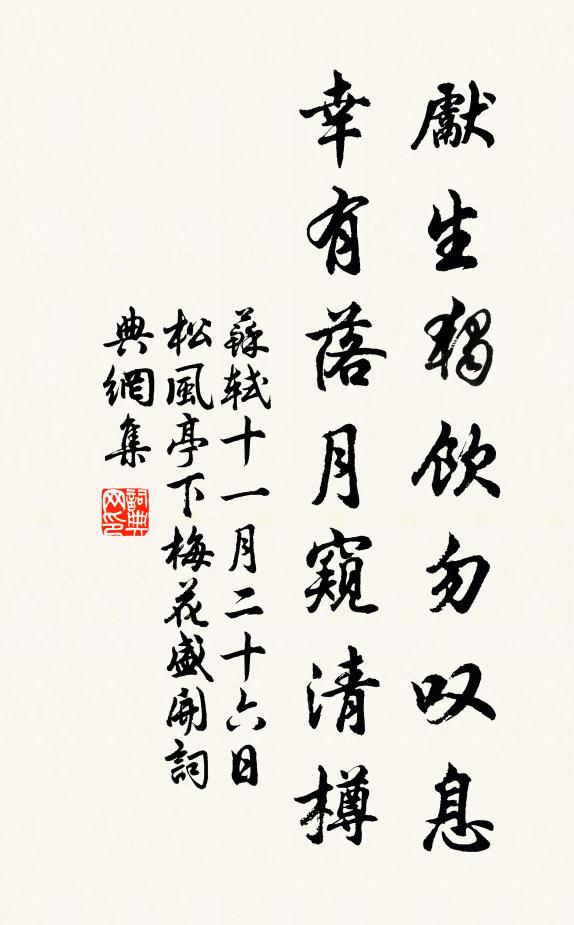 獻生獨飲勿叹息
幸有落月窺清樽
蘇軾十一月二十六日
松風亭下梅花盛開詞
典網集
詞典网印